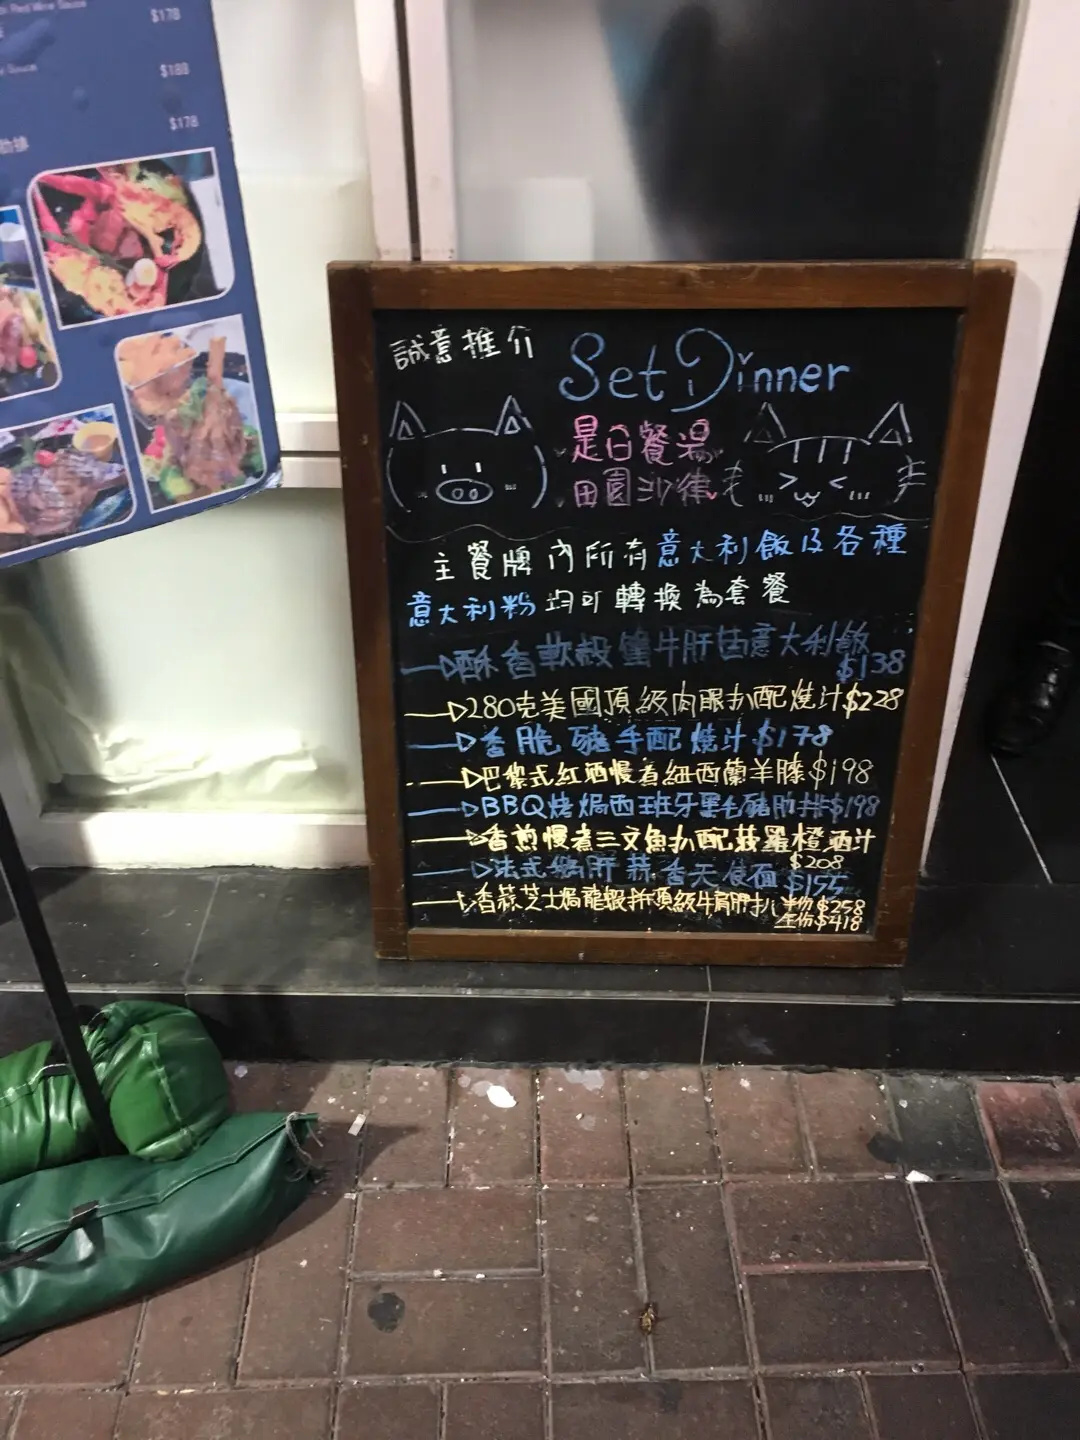 Red Wine Sauce $178
Sauce $188
$178
肋排
誠意推介 Set Dinner
是日餐湯
田園沙律
主餐牌內所有意大利飯及各種
意大利粉均可轉換為套餐
酥香軟殼蟹牛肝菌意大利飯
$138
280克美國頂級肉眼扒配燒汁$228
香脆豬手配燒汁$178
巴黎式紅酒慢煮紐西蘭羊膝$198
BBQ燒焗西班牙黑毛豬肋排$198
香煎慢煮三文魚扒配菠蘿橙酒汁
$208
法式鵝肝蒜香天使面$155
香蒜芝士焗龍蝦拼頂級牛肩胛扒 半份$258
全份$418